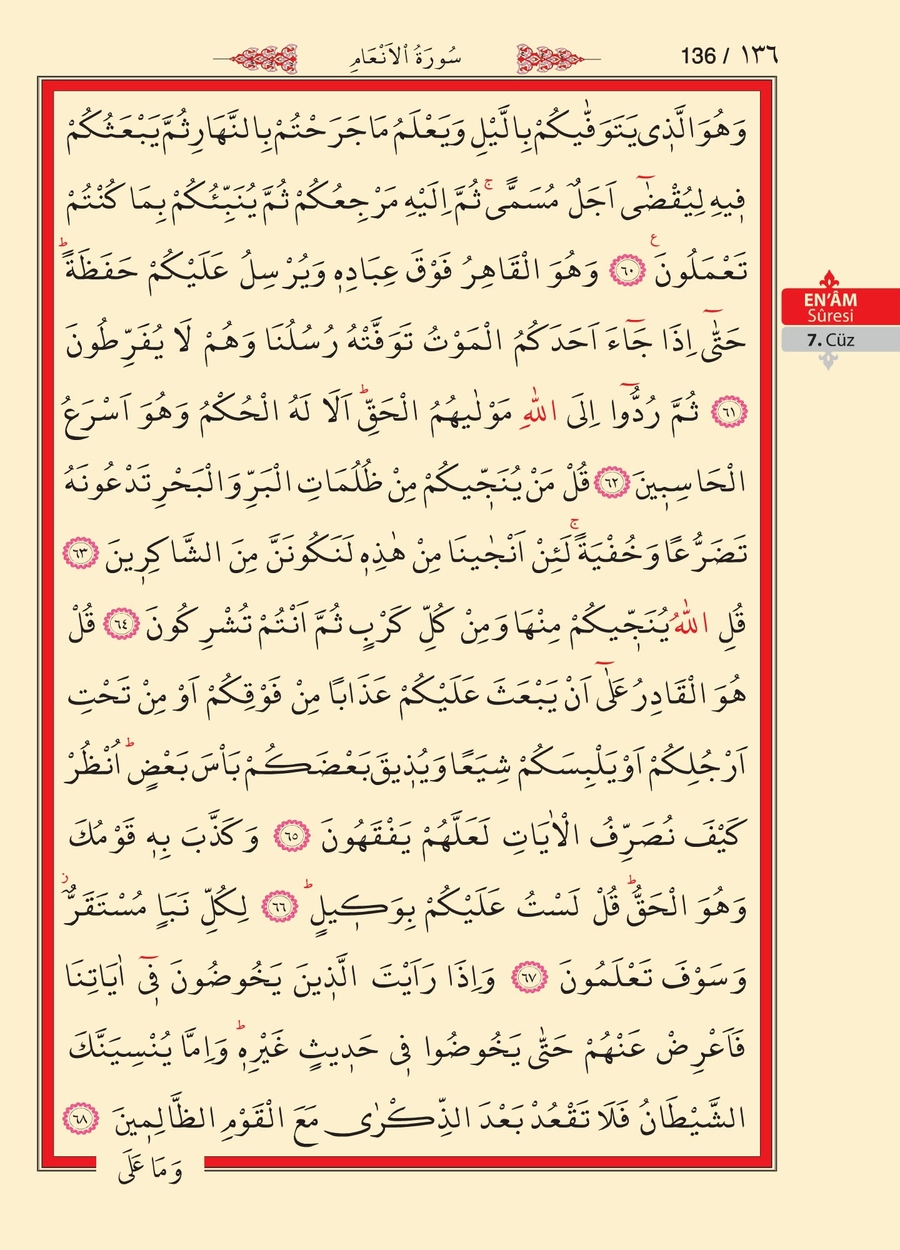 سُورَةُ الْاَنْعَامِ
136 / ١٣٦
وَهُوَ الَّذ۪ي يَتَوَفّٰيكُمْ بِالَّيْلِ وَيَعْلَمُ مَا جَرَحْتُمْ بِالنَّهَارِ ثُمَّ يَبْعَثُكُمْ
ف۪يهِ لِيُقْضٰٓى اَجَلٌ مُسَمًّىۚ ثُمَّ اِلَيْهِ مَرْجِعُكُمْ ثُمَّ يُنَبِّئُكُمْ بِمَا كُنْتُمْ
تَعْمَلُونَ۟ ﴿٦٠﴾ وَهُوَ الْقَاهِرُ فَوْقَ عِبَادِه۪ وَيُرْسِلُ عَلَيْكُمْ حَفَظَةًۜ
حَتّٰٓى اِذَا جَٓاءَ اَحَدَكُمُ الْمَوْتُ تَوَفَّتْهُ رُسُلُنَا وَهُمْ لَا يُفَرِّطُونَ
﴿٦١﴾ ثُمَّ رُدُّٓوا اِلَى اللّٰهِ مَوْلٰيهُمُ الْحَقِّۜ اَلَا لَهُ الْحُكْمُ وَهُوَ اَسْرَعُ
الْحَاسِب۪ينَ ﴿٦٢﴾ قُلْ مَنْ يُنَجّ۪يكُمْ مِنْ ظُلُمَاتِ الْبَرِّ وَالْبَحْرِ تَدْعُونَهُ
تَضَرُّعًا وَخُفْيَةًۚ لَئِنْ اَنْجٰينَا مِنْ هٰذِه۪ لَنَكُونَنَّ مِنَ الشَّاكِر۪ينَ ﴿٦٣﴾
قُلِ اللّٰهُ يُنَجّ۪يكُمْ مِنْهَا وَمِنْ كُلِّ كَرْبٍ ثُمَّ اَنْتُمْ تُشْرِكُونَ ﴿٦٤﴾ قُلْ
هُوَ الْقَادِرُ عَلٰٓى اَنْ يَبْعَثَ عَلَيْكُمْ عَذَابًا مِنْ فَوْقِكُمْ اَوْ مِنْ تَحْتِ
اَرْجُلِكُمْ اَوْ يَلْبِسَكُمْ شِيَعًا وَيُذ۪يقَ بَعْضَكُمْ بَأْسَ بَعْضٍۜ اُنْظُرْ
كَيْفَ نُصَرِّفُ الْاٰيَاتِ لَعَلَّهُمْ يَفْقَهُونَ ﴿٦٥﴾ وَكَذَّبَ بِه۪ قَوْمُكَ
وَهُوَ الْحَقُّۜ قُلْ لَسْتُ عَلَيْكُمْ بِوَك۪يلٍۜ ﴿٦٦﴾ لِكُلِّ نَبَاٍ مُسْتَقَرٌّۘ
وَسَوْفَ تَعْلَمُونَ ﴿٦٧﴾ وَاِذَا رَاَيْتَ الَّذ۪ينَ يَخُوضُونَ ف۪ٓي اٰيَاتِنَا
فَاَعْرِضْ عَنْهُمْ حَتّٰى يَخُوضُوا ف۪ي حَد۪يثٍ غَيْرِه۪ۜ وَاِمَّا يُنْسِيَنَّكَ
الشَّيْطَانُ فَلَا تَقْعُدْ بَعْدَ الذِّكْرٰى مَعَ الْقَوْمِ الظَّالِم۪ينَ ﴿٦٨﴾
وَمَا عَلَى
EN'ÂM
Sûresi
7. Cüz